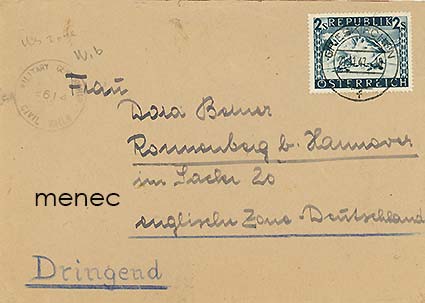 US Zone
W, b
2s REPUBLIK 2s
ÖSTERREICH
MILITARY CENSORSHIP
CIVIL MAILS
Frau
Dora Bemer
Ronnenberg b. Hannover
im Sacke 20
menec
englische Zone - Deutschland
Dringend